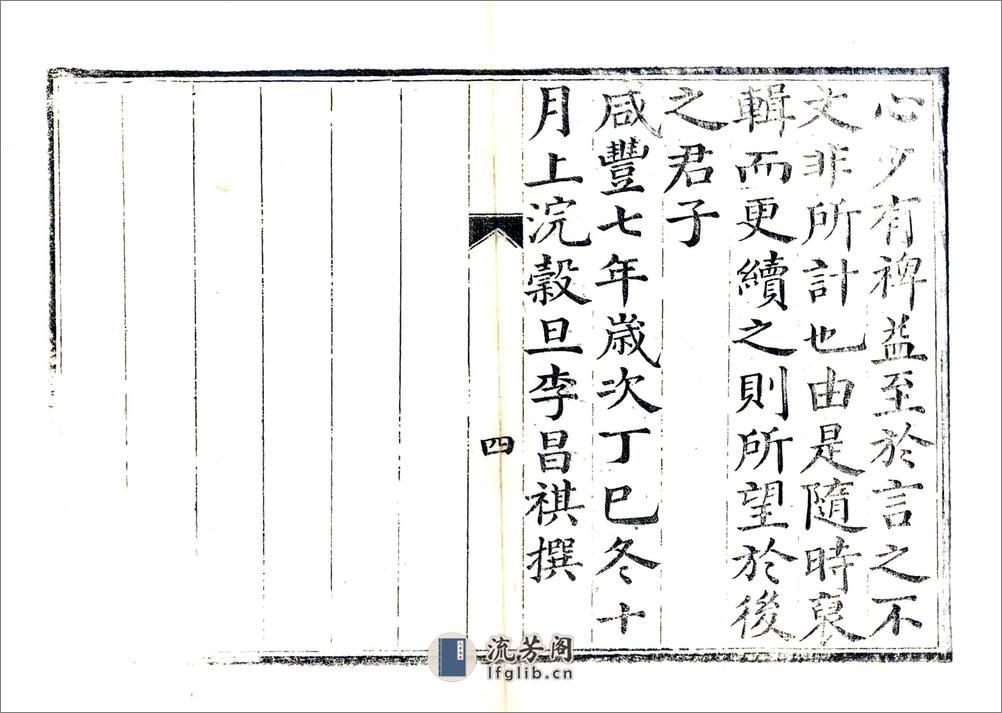 心少有裨益至於言之不
文非所計也由是隨時裒
輯而更續之則所望於後
之君子
咸豐七年歲次丁巳冬十
月上浣穀旦李昌祺撰
四
流芳阁
lfglib.cn